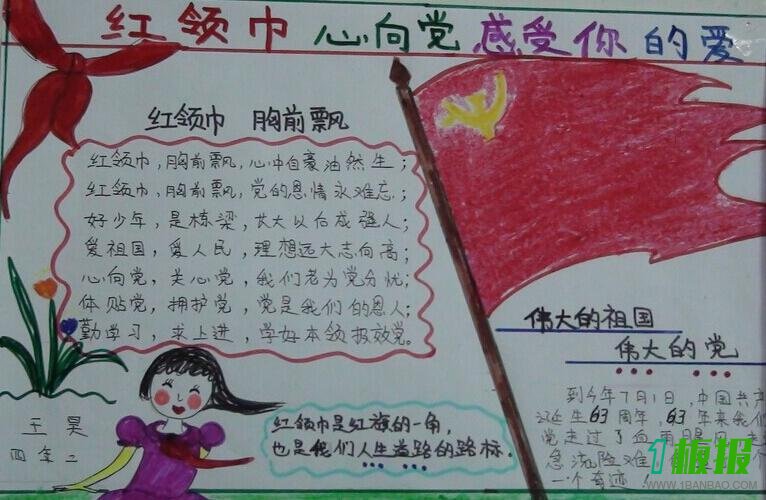 红领巾 心向党 感受你的爱
红领巾 胸前飘
红领巾，胸前飘，心中自豪油然生；
红领巾，胸前飘，党的恩情永难忘；
好少年，是栋梁，长大以后成强人；
爱祖国，爱人民，理想远大志向高；
心向党，关心党，我们老为党分忧；
体贴党，拥护党，党是我们的恩人；
勤学习，求上进，学好本领报效党。
伟大的祖国
伟大的党
到今年7月1日，中国共产
诞生63周年，63年来我们
党走过了血雨
急流险难
一个奇迹！
王昊
四年二
红领巾是红旗的一角，
也是我们人生道路的路标.
1板报
WWW.1BANBAO.COM